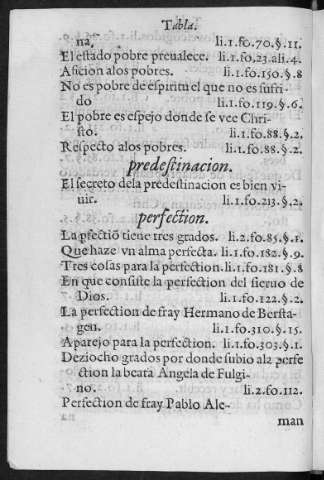 Tabla.
na, li.1.fo.70.§.11.
El estado pobre preualece. li.1.fo.23.ali.4.
Aficion alos pobres. li.1.fo.150.§.8
No es pobre de espiritu el que no es sufri-
do li.1.fo.119.§.6.
El pobre es espejo donde se vee Chri-
sto. li.1.fo.88.§.2.
Respecto alos pobres. li.1.fo.88.§.2.
predestinacion.
El secreto dela predestinacion es bien vi-
uir. li.1.fo.213.§.2.
perfection.
La pfectiõ tiene tres grados. li.2.fo.85.§.1.
Que haze vn alma perfecta. li.1.fo.182.§.9.
Tres cosas para la perfection. li.1.fo.181.§.8
En que consiste la perfection del sieruo de
Dios. li.1.fo.122.§.2.
La perfection de fray Hermano de Bersta-
gen. li.1.fo.310.§.15.
Aparejo para la perfection. li.1.fo.303.§.1.
Deziocho grados por donde subio ala perfe
ction la beata Angela de Fulgi-
no. li.2.fo.112.
Perfection de fray Pablo Ale-
man